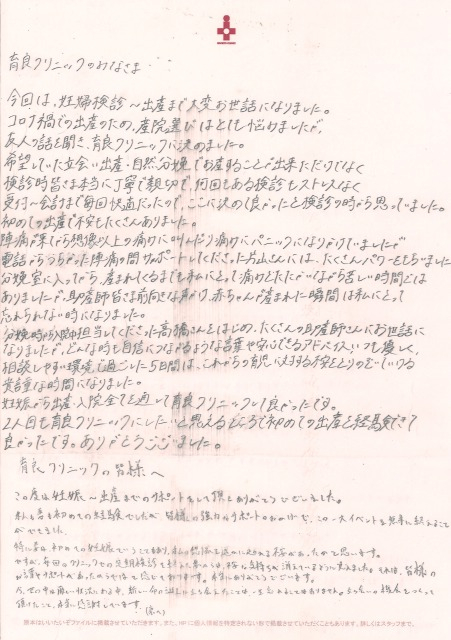 育良クリニックのみなさま
今回は、妊婦検診〜出産まで大変お世話になりました。
コロナ禍での出産のため、産院選びはとても悩みましたが、
友人の話を聞き、育良クリニックに決めました。
希望していた立会い出産・自然分娩でお産することが出来ただけでなく
検診時皆さま本当に丁寧で親切で、何回もある検診もストレスなく
受付〜会計まで毎回快適だったので、ここに決めて良かったと検診の時から思っていました。
初めての出産で不安もたくさんありました。
陣痛が来てから想像以上の痛みに叫んだり痛みにパニックになりかけていましたが
電話からつながった陣痛の間サポートしてくださった片山さんには、たくさんパワーをもらいました
分娩室に入ってから、産まれてくるまでも私にとって痛みとたたかいながら苦しい時間では
ありましたが、助産師皆さま前向きな声かけ、赤ちゃんが産まれた瞬間は私にとって
忘れられない時になりました。
分娩時から入院中担当してくださった高橋さんをはじめ、たくさんの助産師さんにお世話に
なりましたが、どんな時も自信につながるような言葉や安心できるアドバイス、いつも優しく、
相談しやすい環境で過ごした5日間は、これからの育児に対する不安をとりのぞいてくれる
貴重な時間になりました。
妊娠から出産、入院全てを通して育良クリニックして良かったです。
2人目も育良クリニックにしたいと思えるところで初めての出産を経験できて
良かったです。ありがとうございました。
育良クリニックの皆様へ
この度は妊娠〜出産までのサポートをして頂きありがとうございました。
私も妻も初めての経験でしたが、皆様の強力なサポートのおかげで、この一大イベントを無事に終えること
ができました。
特に妻は、初めての妊娠ということもあり、
お言葉やサポートがあったからこそと感じております。本当にありがとうございます。
頂けたこと、本当に感謝しています。
原本はいいたいぞファイルに掲載させていただきます。また、HPに個人情報を特定されない形で掲載させていただくこともあります。詳しくはスタッフまで。